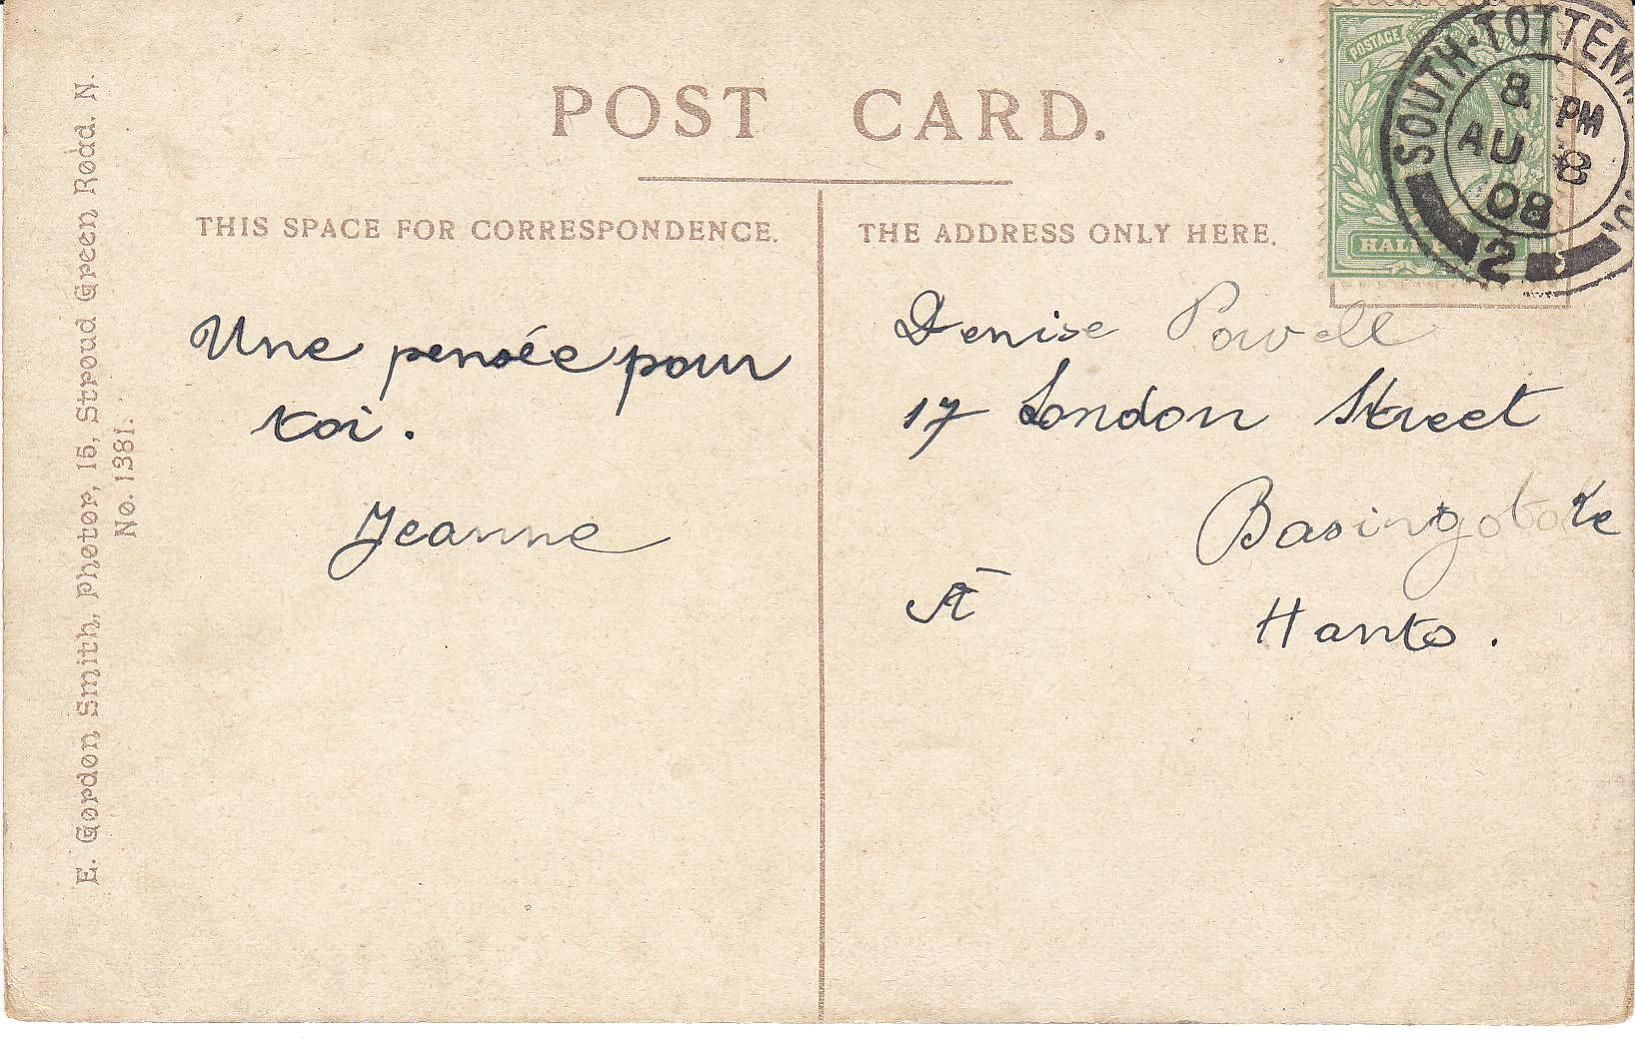 POST CARD.
THIS SPACE FOR CORRESPONDENCE.
THE ADDRESS ONLY HERE.
E. Gordon Smith, Photor, 15, Stroud Green Road. N.
No. 1381.
POSTAGE
HALF
SOUTH·TOTTENH
8. PM
AU 8
08
2
Une pensée pour
toi.
Jeanne
Denise Powell
17 London Street
Basingstoke
Hants.